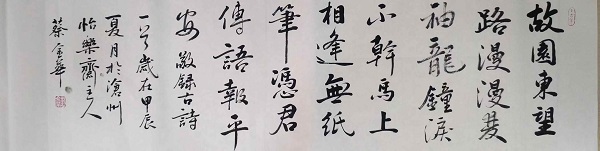 故園東望
路漫漫雙
袖龍鐘淚
不幹馬上
相逢無紙
筆憑君
傳語報平
安敬錄古詩
一首歲在甲辰
夏月於滄州
怡樂齋主人
蔡金華